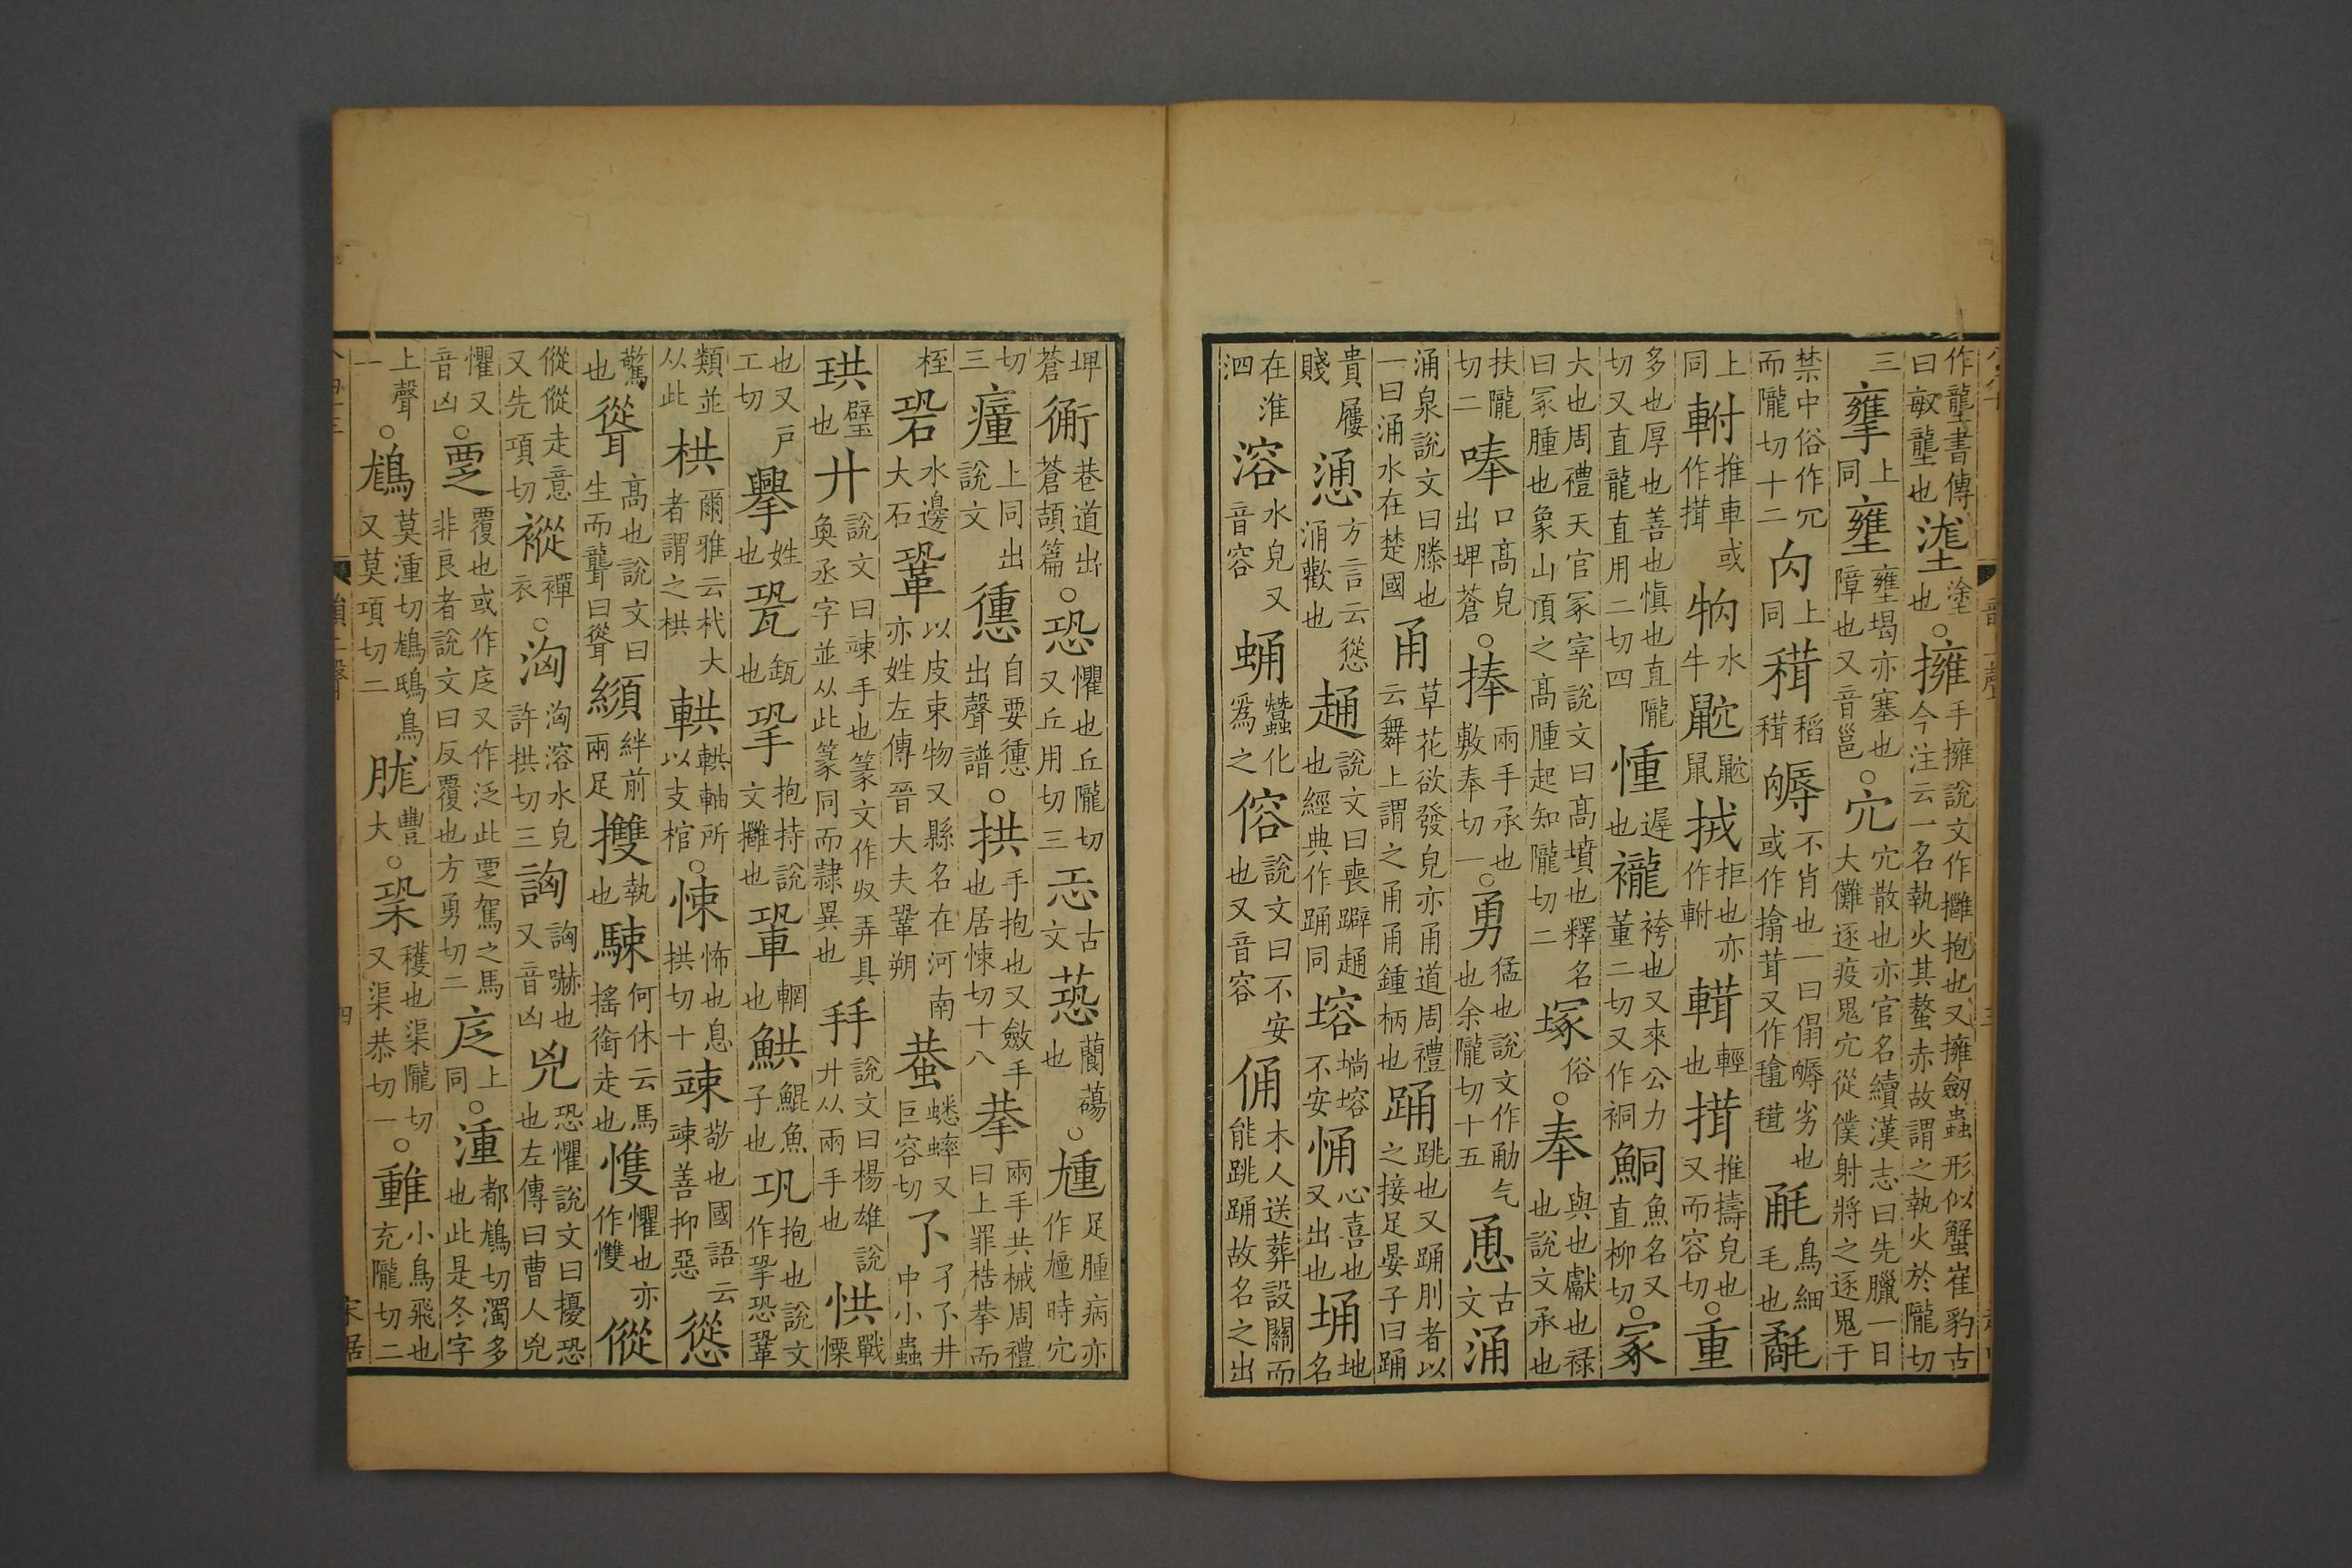 作壟書傳曰畝壟也𡏖塗也○擁手擁說文作攤抱也又擁劒蟲形似蟹崔豹古今注云一名執火其螯赤故謂之執火於隴切
三𢹬上同壅壅堨亦塞也障也又音邕○宂宂散也亦官名續漢志曰先臘一日大儺逐疫鬼宂從僕射將之逐鬼于
禁中俗作冗而隴切十二㝐上同䅸稻䅸不肖也一曰傝㒆劣也或作搑茸又作𣯏𣯍鳥細毛也
上同軵推車或作搑水牛鼠拒也亦作軵輕也搑推擣皃也又而容切○重
多也厚也善也愼也直隴切又直龍直用二切四㣫遲也襱袴也又來公力董二切又作䙌鮦魚名又直柳切○冢
大也周禮天官冢宰說文曰高墳也釋名曰冢腫也象山頂之高腫起知隴切二塚俗○奉與也獻也祿也說文承也
扶隴切二唪口高皃出埤蒼○捧兩手承也敷奉切一○勇猛也說文作勈气也余隴切十五恿古文涌
涌泉說文曰滕也一曰涌水在楚國甬草花欲發皃亦甬道周禮云舞上謂之甬甬鍾柄也踊跳也又踊刖者以之接足晏子曰踊
貴屨賤慂方言云慫涌歡也䞻說文曰喪擗䞻也經典作踊同㙑塎不安恿心喜也又出也埇地名
在淮泗溶水皃又音容蛹蠶化爲之傛說文曰不安也又音容俑木人送葬設關而能跳踊故名之出
埤蒼㣚巷道出蒼頡篇○恐懼也丘隴切又丘用切三㤨古文蛩藺蕩也○尰足腫病亦作㿈時宂
切三㿈上同出說文㣫自要㣫出聲譜○拱手抱也又斂手也居悚切十八拲兩手共械周禮曰上罪梏拲而
桎䂬水邊大石鞏以皮束物又縣名在河南亦姓左傳晉大夫鞏朔蛬蟋蟀又巨容切孒孑孒井中小蟲
珙璧也廾說文曰竦手也篆文作𠬞弄具奐丞字並从此篆同而隸異也𢪒說文曰楊雄說廾从兩手也㤨戰慄
也又戶工切𦦝姓也㼦瓨也㧬抱持說文攤也也䡗輞也䱋鯤魚子也巩抱也說文作㧬恐鞏
類並以此栱爾雅云杙大者謂之栱輁輁軸所以支棺○悚怖也息拱切十竦敬也國語云竦善抑惡慫
驚也聳高也說文曰生而聾曰聳䋫絆前兩足㩳執也駷何休云馬搖銜走也愯懼也亦作㦼㞞
㞞㞞走意又先項切𧛷褌衣○洶洶溶水皃許拱切三訩訩嚇也又音凶兇恐懼說文曰擾恐也左傳曰曹人兇
懼又音凶○覂覆也或作庋又作泛此覂駕之馬非良者說文曰反覆也方勇切二上同○湩都鵝切濁多也此是冬字
上聲一○鶧莫湩切鶧鴟鳥又莫項切二朧豐大○㭟穫也渠隴切又渠恭切一○小鳥飛也充隴切二